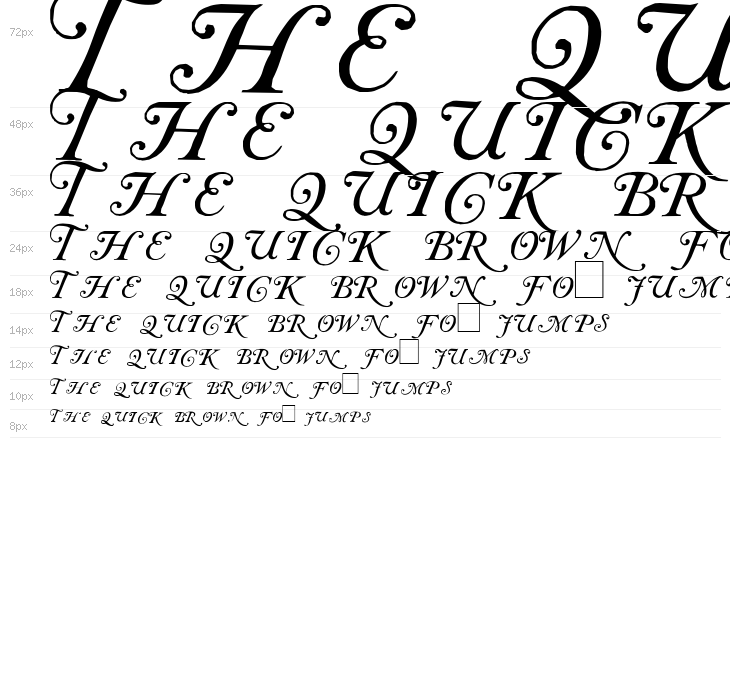 72px THE QU
48px THE QUICK
36px THE QUICK BR
24px THE QUICK BROWN FO
18px THE QUICK BROWN FO□ JUM
14px THE QUICK BROWN FO□ JUMPS
12px THE QUICK BROWN FO□ JUMPS
10px THE QUICK BROWN FO□ JUMPS
8px THE QUICK BROWN FO□ JUMPS